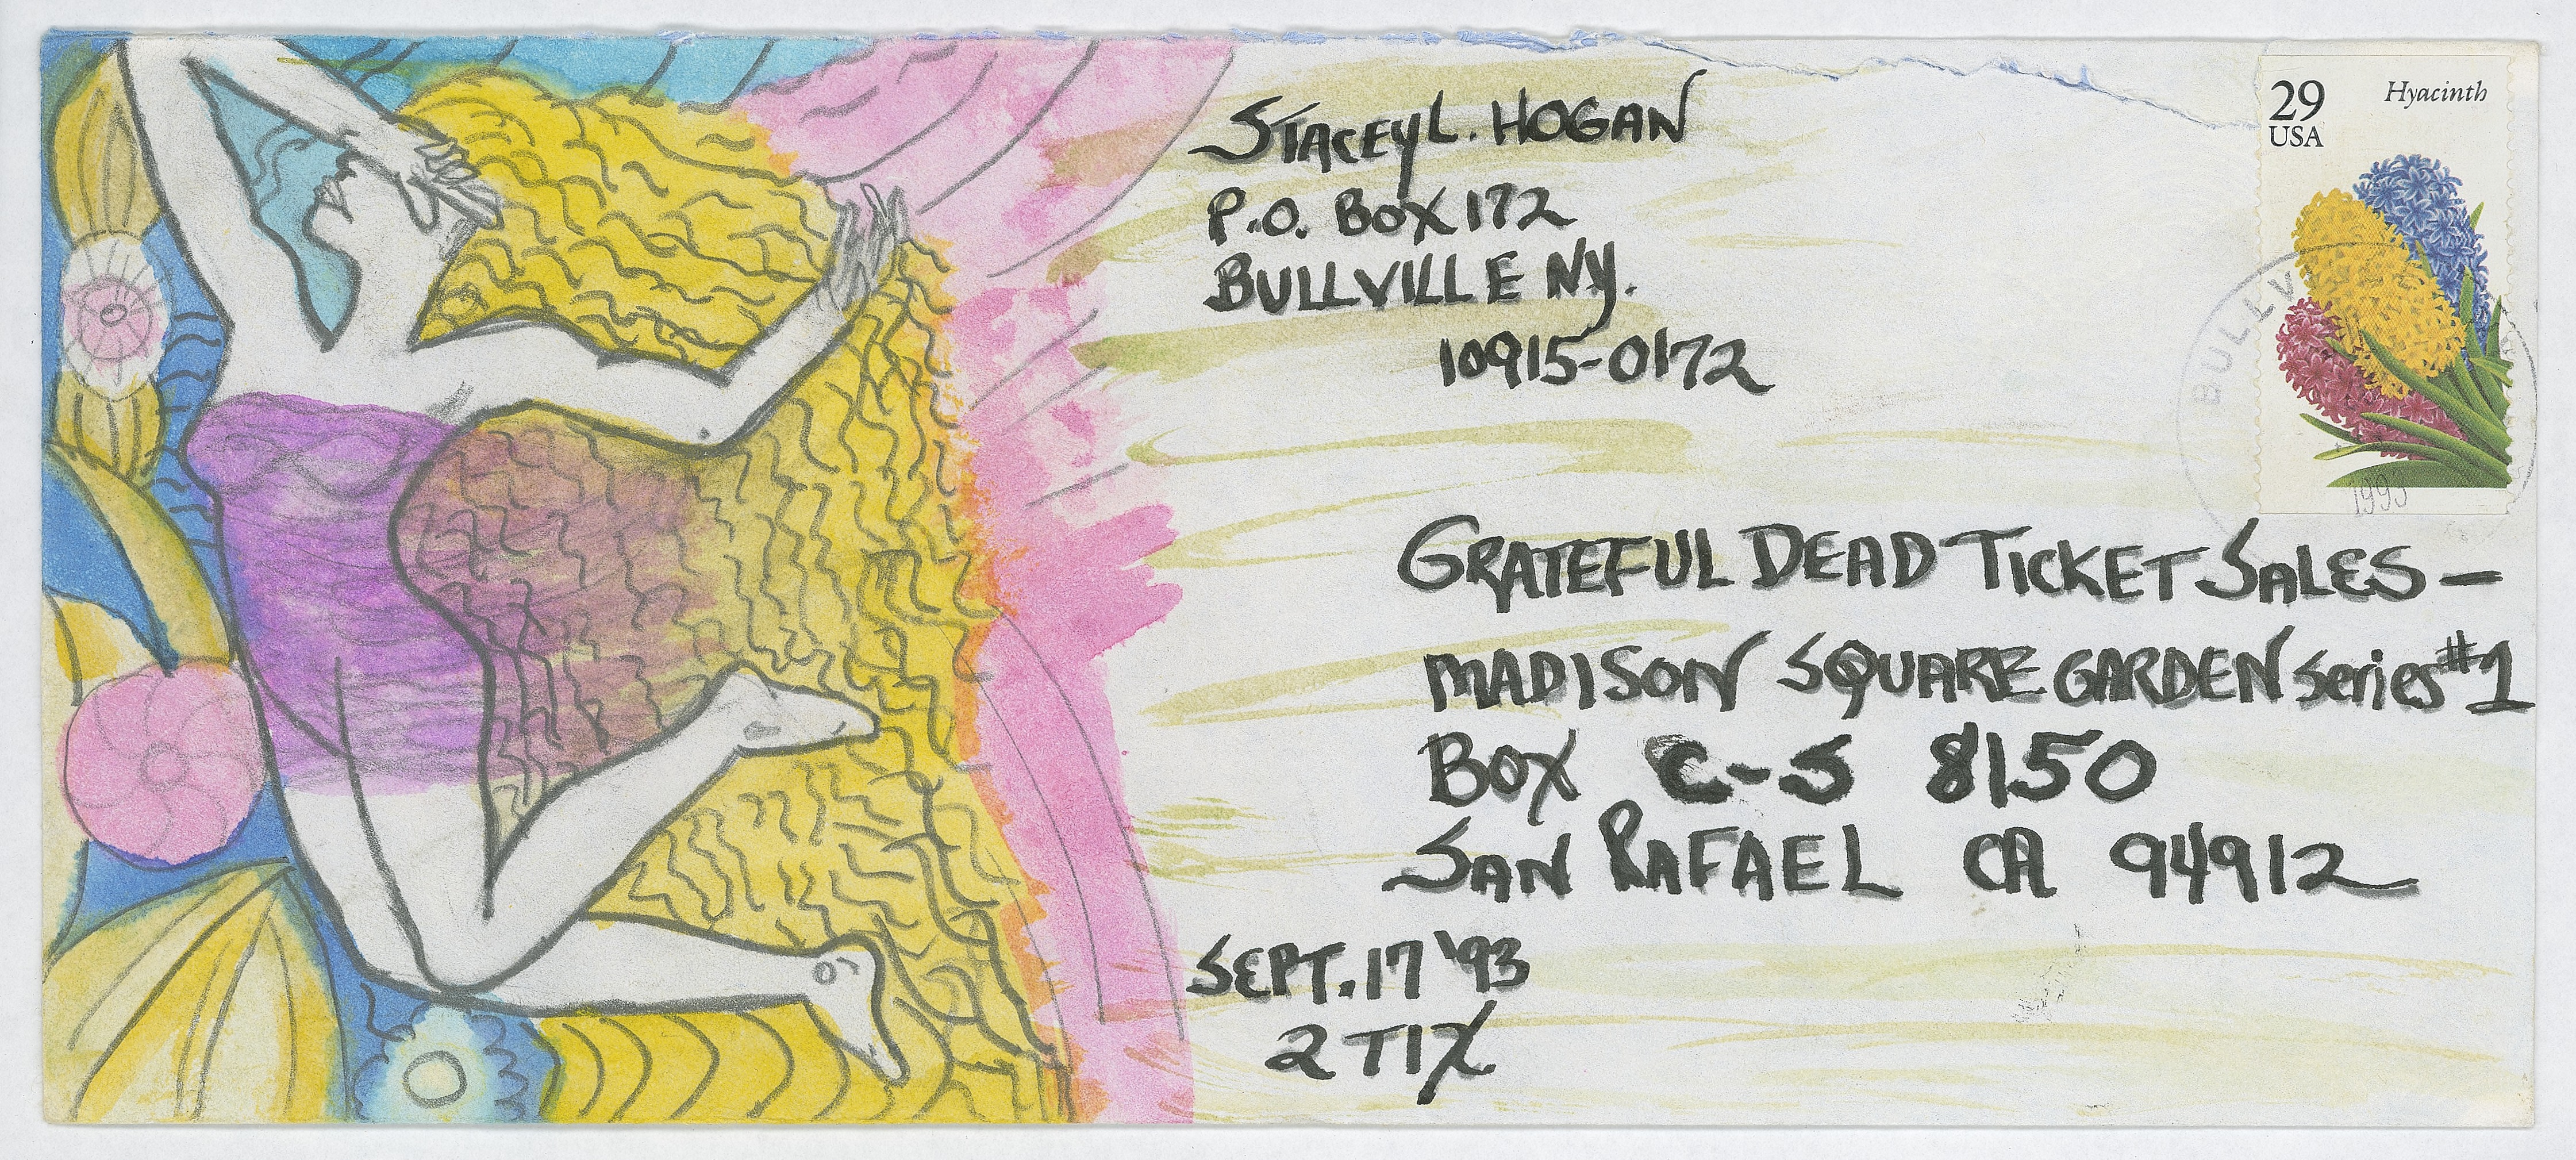 STACEY L. HOGAN
P.O. BOX 172
BULLVILLE NY.
10915-0172
29
USA
Hyacinth
BULLV
1993
GRATEFUL DEAD TICKET SALES -
MADISON SQUARE GARDEN Series #1
BOX C-S 8150
SAN RAFAEL CA 94912
SEPT. 17 '93
2 TIX